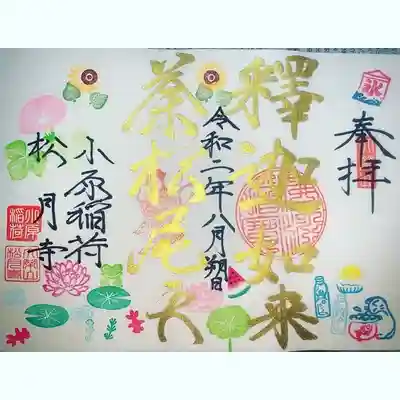 奉拝
釋迦如来
令和二年八月朔日
荼枳尼天
小原稲荷
松月寺
氷
小原
稲荷